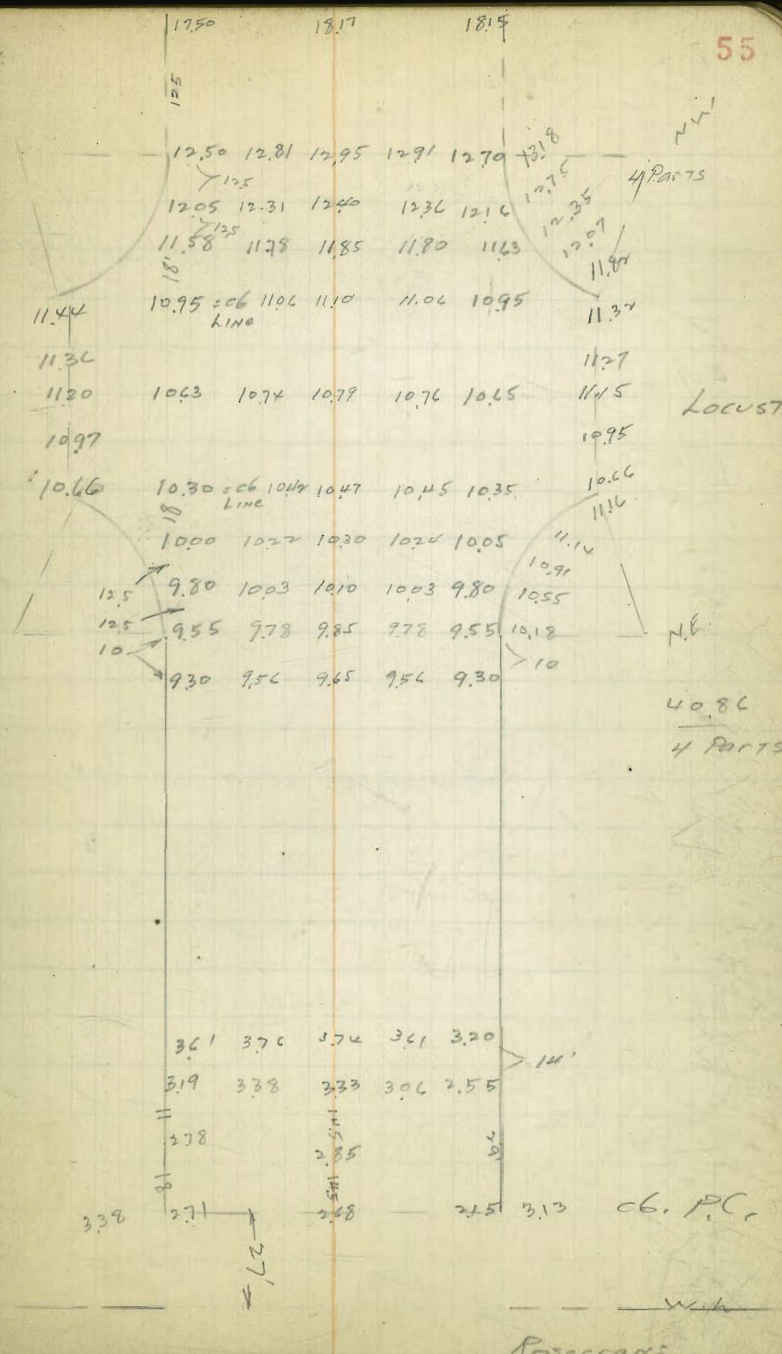 55
17.50 18.17 18.15
125
N.W.
12.50 12.81 12.95 12.91 12.70 13.18
4 Parts
12.5 12.75
12.05 12.31 12.40 12.36 12.16 12.35
12.5 12.07
11.58 11.78 11.85 11.80 11.63
18' 11.82
11.44 10.95 = cb 11.06 11.10 11.06 10.95 11.32
LINE
11.36 11.27
11.20 10.63 10.74 10.79 10.76 10.65 11.15 Locust
10.97 10.95
10.66 10.30 = cb 10.42 10.47 10.45 10.35 10.66
LINE
18 11.16
10.00 10.22 10.30 10.24 10.05 11.14
10.91
12.5 9.80 10.03 10.10 10.03 9.80 10.55
12.5 9.55 9.78 9.85 9.78 9.55 10.18 N.E.
10 10
9.30 9.56 9.65 9.56 9.30
40.86
4 Parts
3.61 3.76 3.74 3.61 3.20
14'
3.19 3.38 3.33 3.06 2.55
11
2.78 14.5
2.85
19 14.5
3.38 2.71 2.68 2.15 3.13 cb. P.C.
27'
W.h
Rosecrans